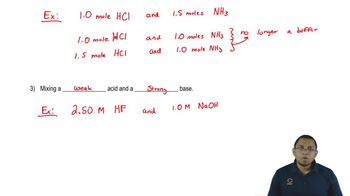 Ex: 1.0 mole HCl and 1.5 moles NH3
1.0 mole HCl and 1.0 moles NH3 } no longer a buffer
1.5 mole HCl and 1.0 mol NH3
3) Mixing a weak acid and a strong base.
Ex: 2.50 M HF and 1.0 M NaOH